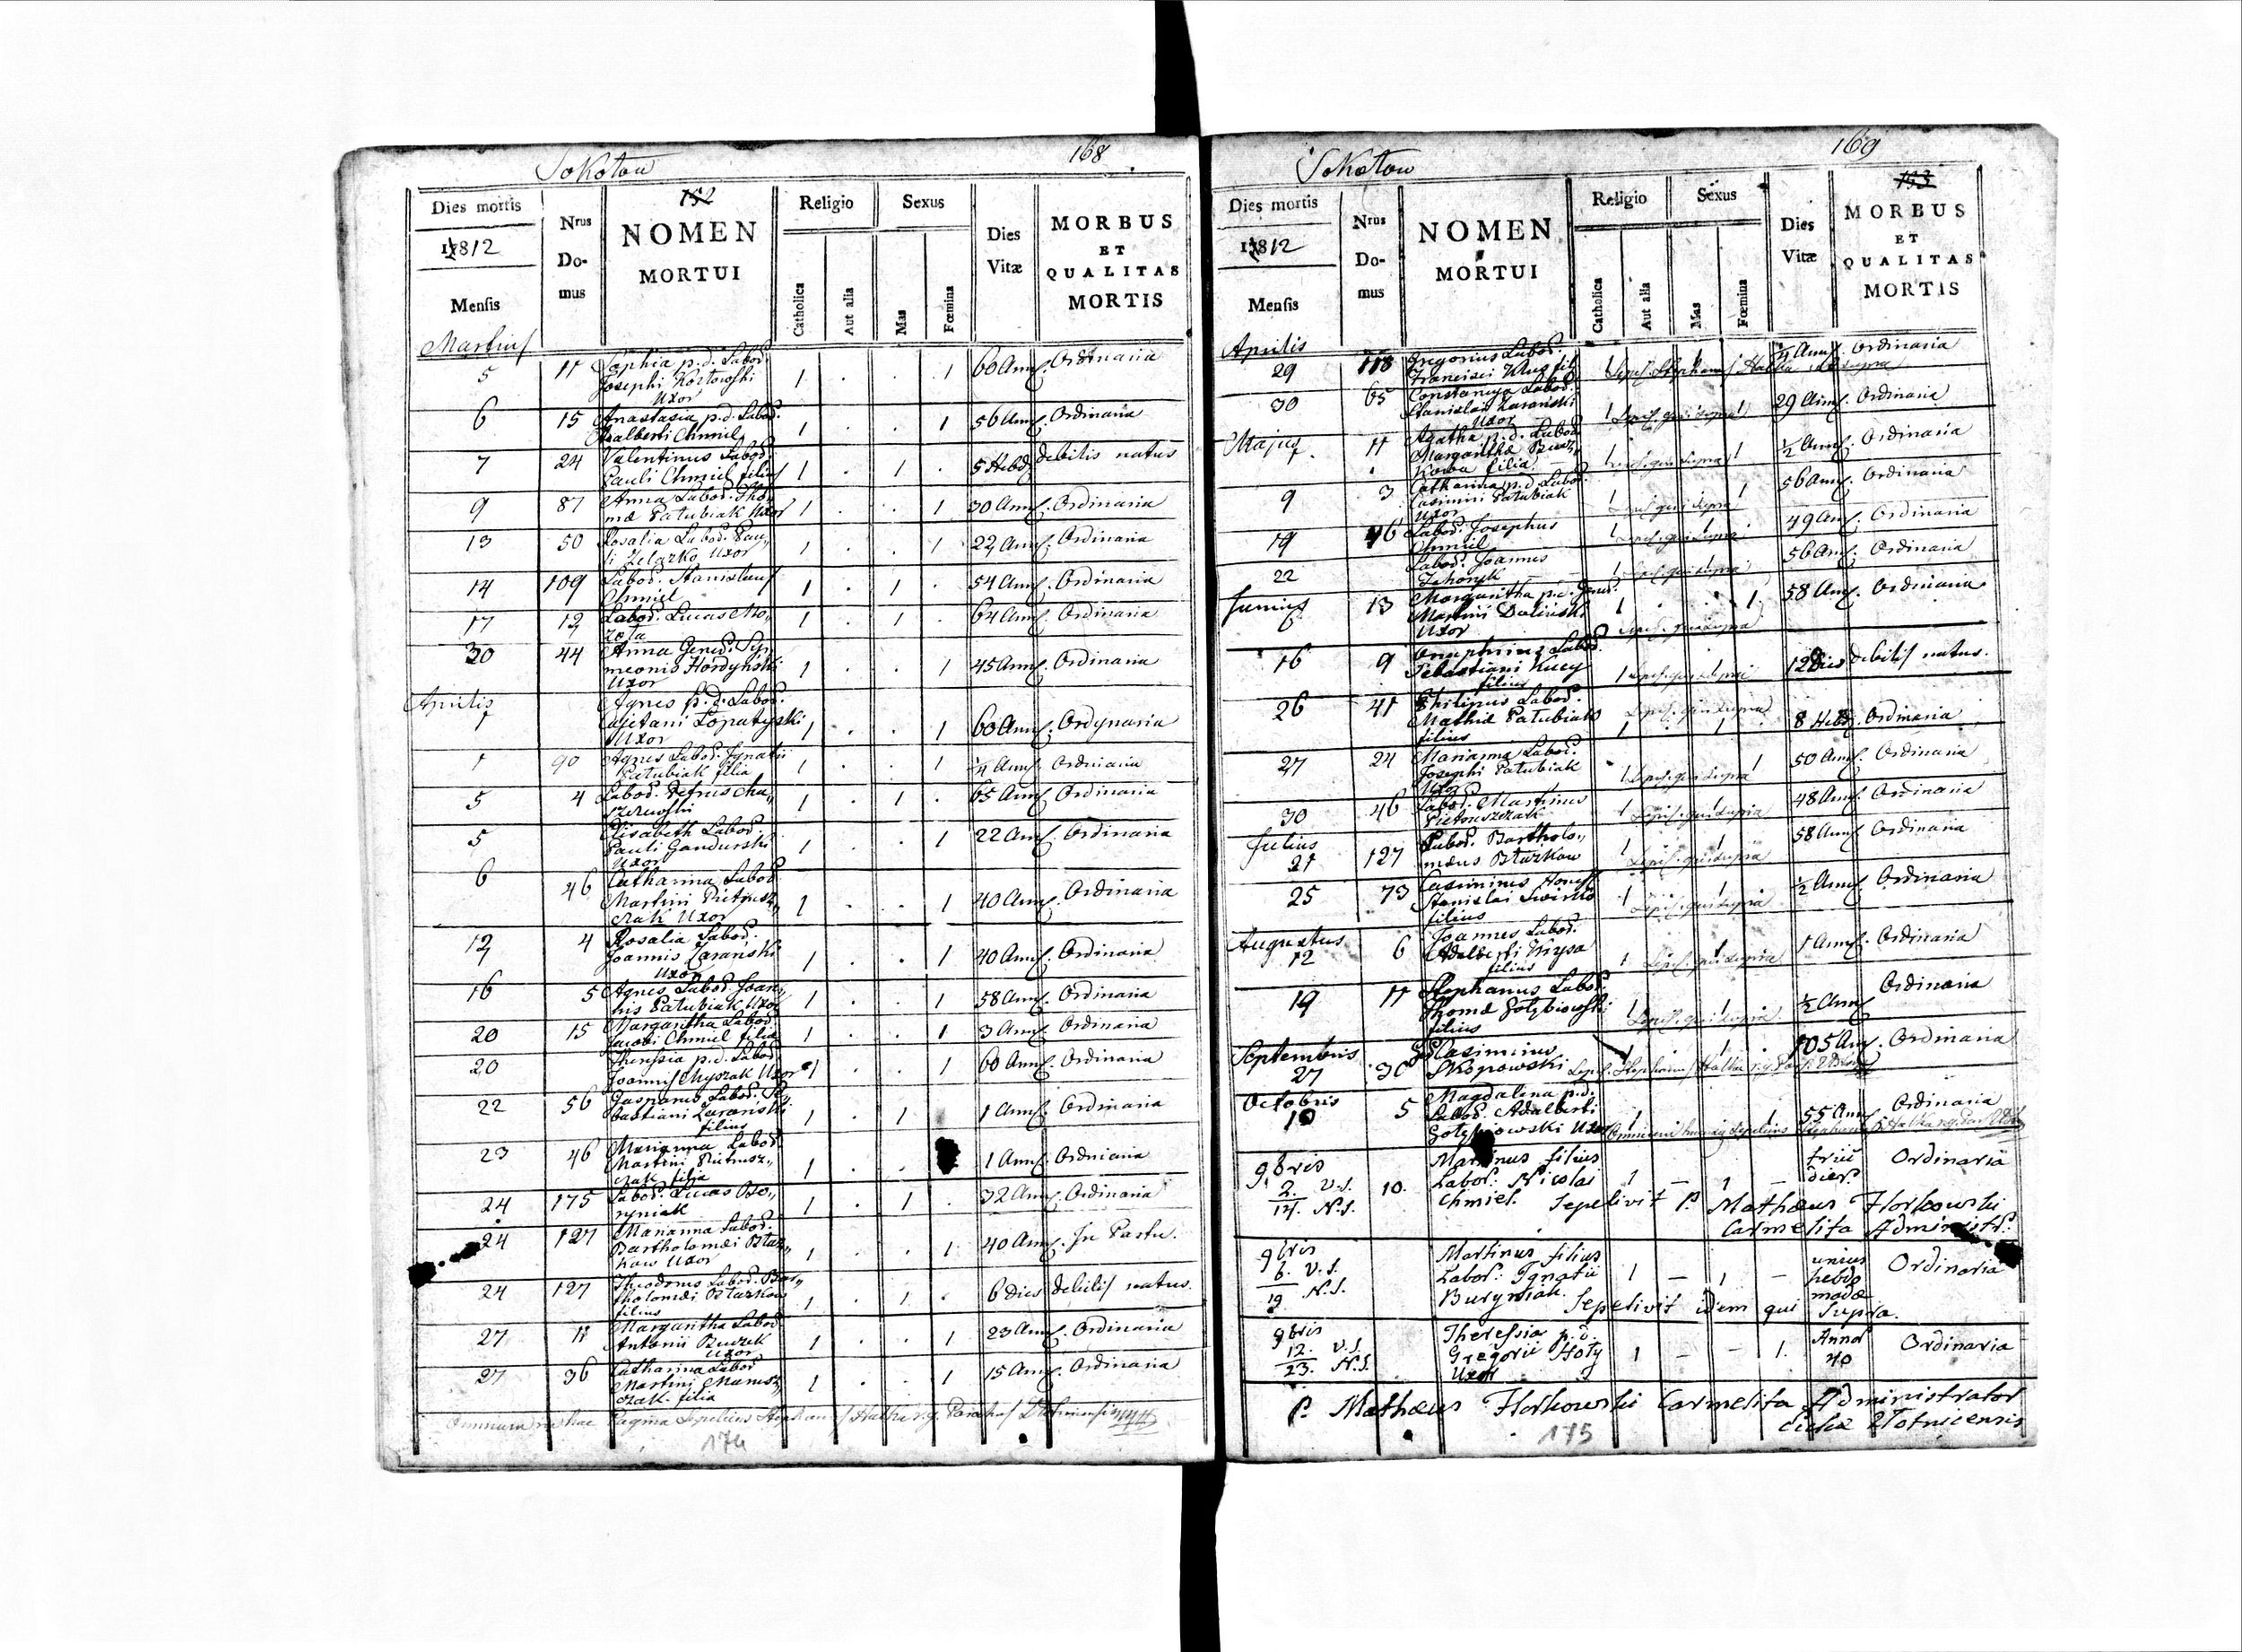 Sokołow
168
Dies mortis
1812
Mensis
Nrus
Do-
mus
152
NOMEN
MORTUI
Religio
Catholica
Aut alia
Sexus
Mas
Fœmina
Dies
Vitæ
MORBUS
ET
QUALITAS
MORTIS
Martius
5 11 Sophia p.d. Labor. 60 Ann. Ordinaria
Josephi Kozłowski 1 . . 1
Uxor
6 15 Anastasia p.d. Labor. 56 Ann. Ordinaria
Adalberti Chmiel 1 . . 1
7 24 Valentinus Labor. 5 Hebd. debilis natus
Pauli Chmiel filius 1 . 1 .
9 87 Anna Labor. Tho- 30 Ann. Ordinaria
mæ Patubiak Uxor 1 . . 1
13 50 Rosalia Labor. Pau- 22 Ann. Ordinaria
li Zelazko Uxor 1 . . 1
14 109 Labor. Stanislaus 54 Ann. Ordinaria
Chmiel 1 . 1 .
17 12 Labor. Lucas Mo- 64 Ann. Ordinaria
zota 1 . 1 .
30 44 Anna Gener. Sy- 45 Ann. Ordinaria
meonis Hordyński 1 . . 1
Uxor
Aprilis
1 Agnes p.d. Labor.
Cajetani Łopatyński 1 . . 1 60 Ann. Ordynaria
Uxor
1 90 Agnes Labor. Ignatii ¼ Ann. Ordinaria
Patubiak filia 1 . . 1
5 4 Labor. Petrus Cha- 65 Ann. Ordinaria
1 . 1 .
5 Elisabeth Labor. 22 Ann. Ordinaria
Pauli Gandurski 1 . . 1
Uxor
6 46 Catharina Labor.
Martini Pietrusz- 40 Ann. Ordinaria
czak Uxor 1 . . 1
12 4 Rosalia Labor.
Joannis Zarański 40 Ann. Ordinaria
Uxor 1 . . 1
16 5 Agnes Labor. Joan- 58 Ann. Ordinaria
nis Patubiak Uxor 1 . . 1
20 15 Margaritha Labor. 3 Ann. Ordinaria
Jacobi Chmiel filia 1 . . 1
20 Theressia p.d. Labor. 60 Ann. Ordinaria
Joannis Myszak Uxor 1 . . 1
22 56 Gasparus Labor. Se- 1 Ann. Ordinaria
bastiani Zarański 1 . 1 .
filius
23 46 Marianna Labor.
Martini Pietrusz- 1 . . 1 Ann. Ordinaria
czak filia
24 175 Labor. Lucas Bo- 32 Ann. Ordinaria
ryniak 1 . 1 .
24 127 Marianna Labor.
Bartholomæi Błaz- 40 Ann. In Partu.
kow Uxor 1 . . 1
24 127 Theodorus Labor. Bar- 6 dies debilis natus.
tholomæi Błazkow 1 . 1 .
filius
27 11 Margaritha Labor. 23 Ann. Ordinaria
Antonii Buczek 1 . . 1
Uxor
27 36 Catharina Labor. 15 Ann. Ordinaria
Martini 1 . . 1
filia
Omnium in hac Pagina Sepeliens Stephanus Hałka
174
Sokołow
169
Dies mortis
1812
Mensis
Nrus
Do-
mus
NOMEN
MORTUI
Religio
Catholica
Aut alia
Sexus
Mas
Fœmina
Dies
Vitæ
153
MORBUS
ET
QUALITAS
MORTIS
Aprilis
29 118 Gregorius Labor. ¼ Ann. Ordinaria
Francisci Kluz fil. Sepel. Stephanus Hałka ut supra
30 65 Constancya Labor. 29 Ann. Ordinaria
Stanislai Zarański 1 Sepel. qui supra 1
Uxor
Majus
7. 11 Agatha p.d. Labor. ½ Ann. Ordinaria
Margaritha Bucz- 1 Sepel. qui supra 1
kowa filia
9 3 Catharina p.d. Labor. 56 Ann. Ordinaria
Casimiri Patubiak 1 Sepel. qui supra 1
Uxor
19 46 Labor. Josephus 49 Ann. Ordinaria
Chmiel 1 Sepel. qui supra 1
22 Labor. Joannes 56 Ann. Ordinaria
1 Sepel. qui supra 1
Junius
1 13 Margaritha p.d. Gener. 58 Ann. Ordinaria
Martini Daliński 1 . . 1
Uxor Sepel. qui supra
16 9 Onuphrius Labor. 12 Dies debilis natus.
Sebastiani Kucy 1 Sepel. qui supra 1
filius
26 41 Philipus Labor. Sepel. qui supra
Mathiæ Patubiak 1 . 1 . 8 Hebd. Ordinaria
filius
27 24 Marianna Labor. 50 Ann. Ordinaria
Josephi Patubiak 1 Sepel. qui supra 1
Uxor
30 46 Labor. Martinus 48 Ann. Ordinaria
Pietruszczak 1 Sepel. qui supra
Julius
21 127 Labor. Bartholo- 58 Ann. Ordinaria
mæus Błazkow 1 Sepel. qui supra 1
25 73 Casimirus Honest. ½ Ann. Ordinaria
Stanislai Swirko 1 Sepel. qui supra 1
filius
Augustus
12 6 Joannes Labor. 1 Ann. Ordinaria
Adalberti Krysa 1 Sepel. qui supra 1
filius
19 11 Stephanus Labor. Ordinaria
Thomæ Gołębiowski ½ Ann.
filius 1 Sepel. qui supra 1
Septembris
27 30 Casimirus 105 Ann. Ordinaria
Skopowski Sepel. Stephanus Hałka
Octobris
10 5 Magdalena p.d. Ordinaria
Labor. Adalberti 55 Ann.
Gołębiowski Uxor
9bris
2. V.S.
14. N.S. 10. Martinus filius triū Ordinaria
Labor: Nicolai 1 – 1 – dier:
Chmiel. Sepelivit P. Mathæus Horkowski
Carmelita Administr:
9bris
6. V.S.
19 N.S. Martinus filius unius Ordinaria
Labor: Ignatii 1 – 1 – hebdo
Buryniak. modæ
Sepelivit idem qui Supra.
9bris
12. V.S.
23. N.S. Theressia p.d. Annor Ordinaria
Gregorii Hoły 1 – – 1. 40
Uxor
P. Mathæus Horkowski Carmelita Administrator
175